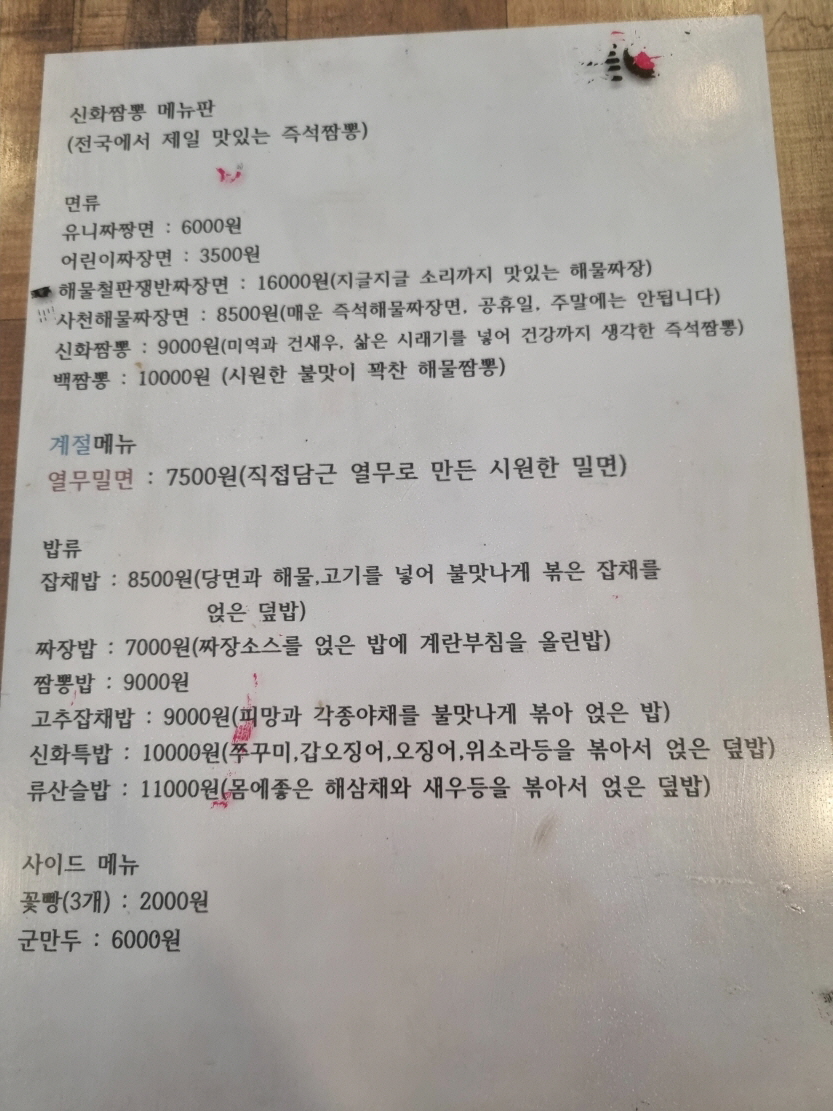 신화짬뽕 메뉴판
(전국에서 제일 맛있는 즉석짬뽕)
면류
유니짜짱면 : 6000원
어린이짜장면 : 3500원
해물철판쟁반짜장면 : 16000원(지글지글 소리까지 맛있는 해물짜장)
사천해물짜장면 : 8500원(매운 즉석해물짜장면, 공휴일, 주말에는 안됩니다)
신화짬뽕 : 9000원(미역과 건새우, 삶은 시래기를 넣어 건강까지 생각한 즉석짬뽕)
백짬뽕 : 10000원 (시원한 불맛이 꽉찬 해물짬뽕)
계절메뉴
열무밀면 : 7500원(직접담근 열무로 만든 시원한 밀면)
밥류
잡채밥 : 8500원(당면과 해물,고기를 넣어 불맛나게 볶은 잡채를
얹은 덮밥)
짜장밥 : 7000원(짜장소스를 얹은 밥에 계란부침을 올린밥)
짬뽕밥 : 9000원
고추잡채밥 : 9000원(피망과 각종야채를 불맛나게 볶아 얹은 밥)
신화특밥 : 10000원(쭈꾸미,갑오징어,오징어,위소라등을 볶아서 얹은 덮밥)
류산슬밥 : 11000원(몸에좋은 해삼채와 새우등을 볶아서 얹은 덮밥)
사이드 메뉴
꽃빵(3개) : 2000원
군만두 : 6000원